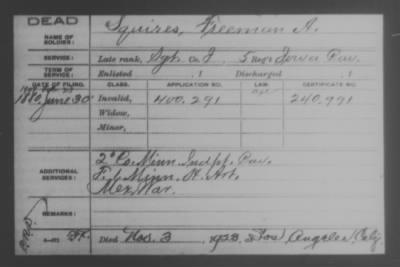 DEAD
NAME OF SOLDIER: Squires, Freeman A.
SERVICE: Late rank, Sgt. Co. I 5 Reg't Iowa Cav.
TERM OF SERVICE: Enlisted , 1 Discharged , 1
DATE OF FILING. CLASS. APPLICATION NO. LAW. CERTIFICATE NO.
1880, June 30 Invalid, 400.291 240.991
Widow,
Minor,
ADDITIONAL SERVICES: 2" Co. Minn. Indpt. Cav.
F. 1 Minn. H. Art.
Mex. War.
REMARKS:
Died Nov. 3 1923 Los Angeles, Calif